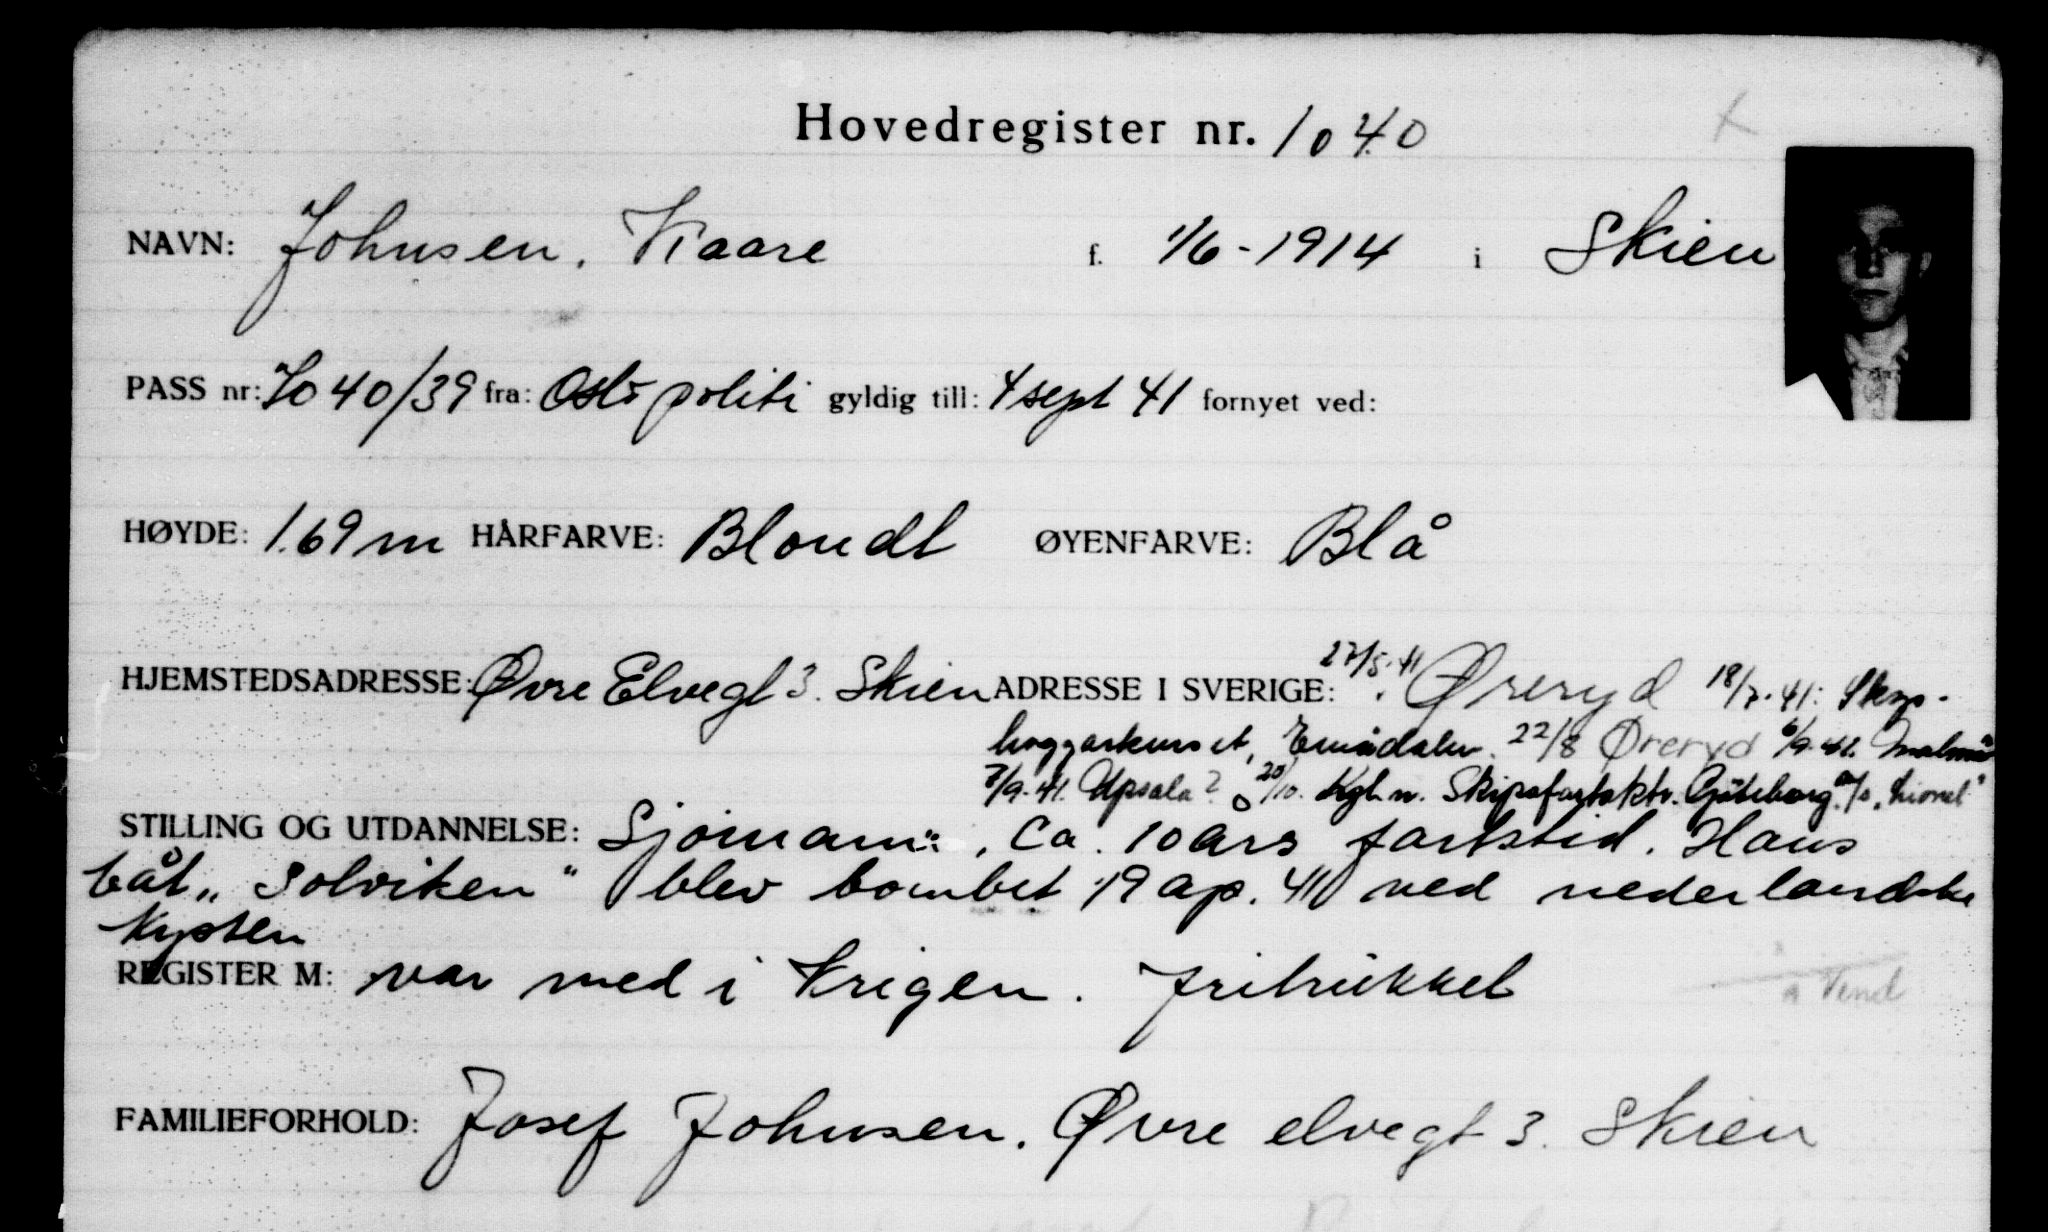 Hovedregister nr. 1040
NAVN: Johnsen, Kaare f. 1/6-1914 i Skien
PASS nr: 7040/39 fra: Oslo politi gyldig till: 4 sept 41 fornyet ved:
HØYDE: 1.69 m HÅRFARVE: Blondt ØYENFARVE: Blå
HJEMSTEDSADRESSE: Øvre Elvegt 3. Skien ADRESSE I SVERIGE: 27/5.41 Øreryd 18/7.41: Skog-
hoggarkurset, 22/8 Øreryd 6/9.41. Malmø
7/9.41. Upsala? 20/10. Kgl. n. Skipsfartsktr. Göteborg. "Lionel"
STILLING OG UTDANNELSE: Sjømann. Ca. 10 års fartstid. Hans
båt „Solviken" blev bombet 19 ap. 41 ved nederlandske
kysten
REGISTER M: var med i Krigen. fritrükket
Vend
FAMILIEFORHOLD: Josef Johnsen. Øvre elvegt 3. Skien